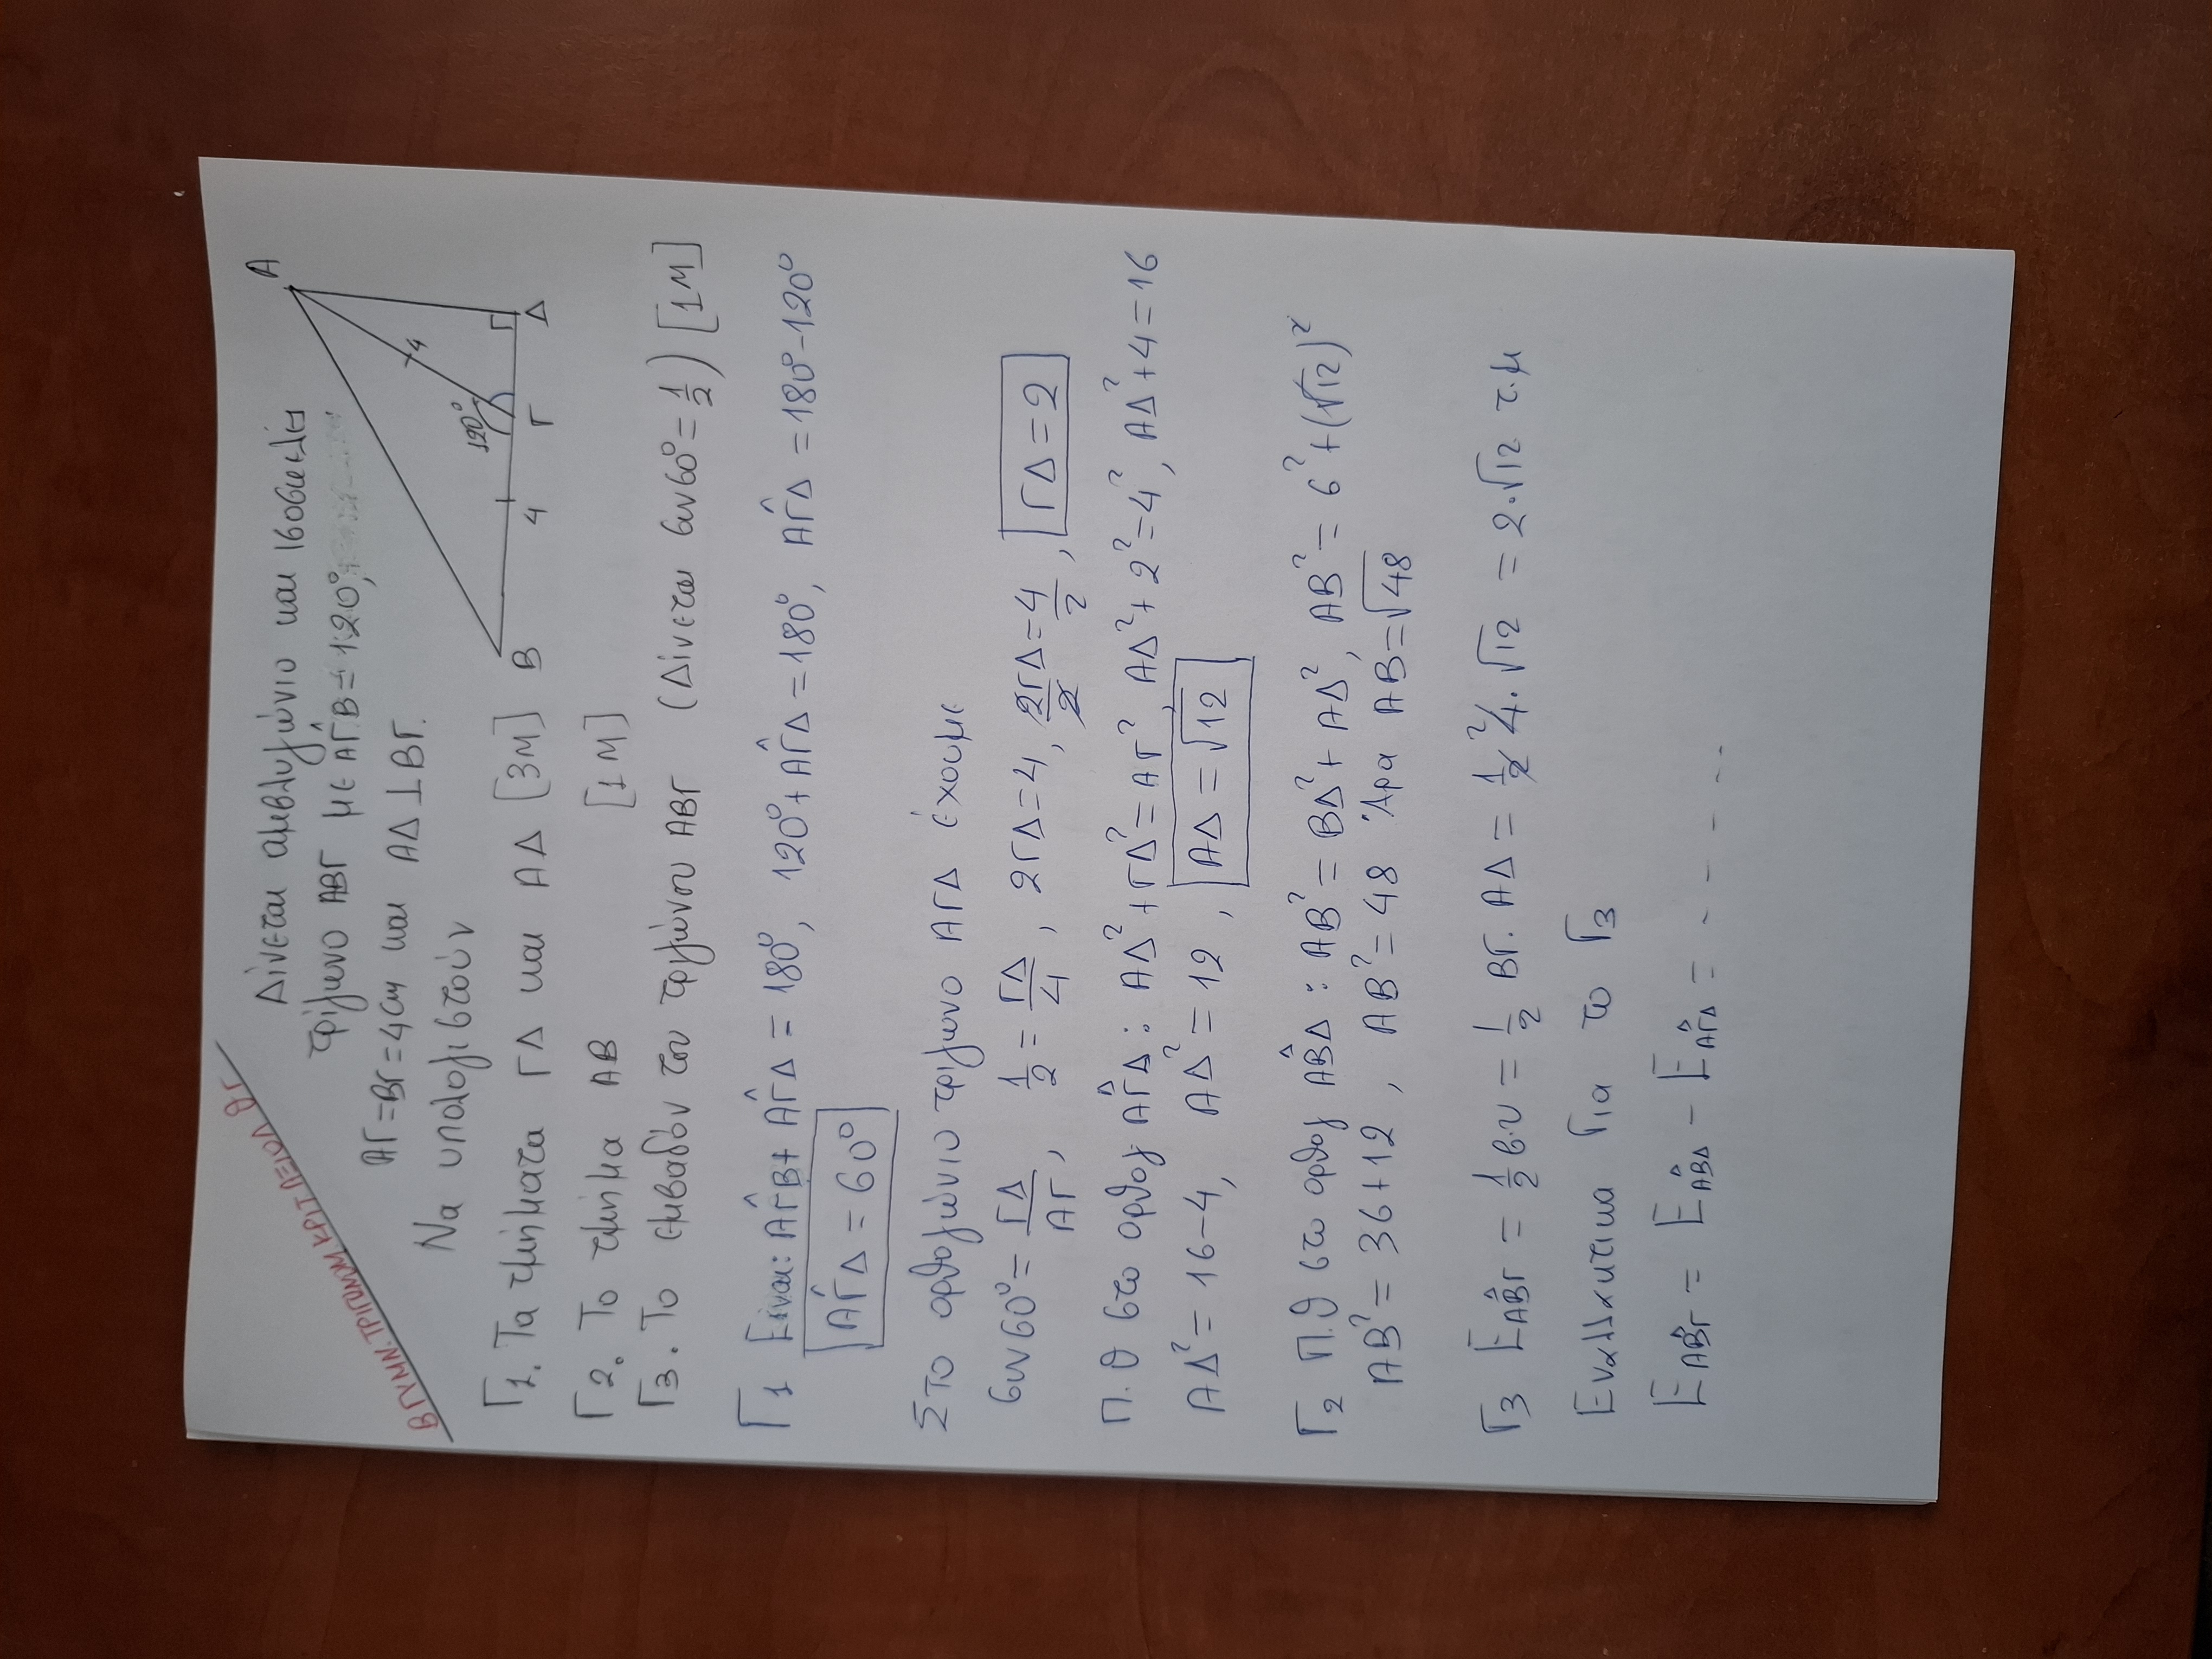 ΒΓΥΜΝ. ΤΡΙΓΩΝΟΜ ΚΡΙΤ ΑΞΙΟΛ ΘΓ
Δίνεται αμβλυγώνιο και ισοσκελές
τρίγωνο ΑΒΓ με ΑΓ̂Β=120°,
ΑΓ=ΒΓ=4cm και ΑΔ⊥ΒΓ.
Να υπολογιστούν
A
4
120°
B
4
Γ
Δ
Γ1. Τα τμήματα ΓΔ και ΑΔ [3Μ]
Γ2. Το τμήμα ΑΒ [1Μ]
Γ3. Το εμβαδόν του τριγώνου ΑΒΓ (Δίνεται συν60°=1/2) [1Μ]
Γ1 Είναι: ΑΓ̂Β+ΑΓ̂Δ=180°, 120°+ΑΓ̂Δ=180°, ΑΓ̂Δ=180°-120°
ΑΓ̂Δ=60°
Στο ορθογώνιο τρίγωνο ΑΓΔ έχουμε
συν60°=ΓΔ/ΑΓ, 1/2=ΓΔ/4, 2ΓΔ=4, 2ΓΔ/2=4/2, ΓΔ=2
Π.Θ στο ορθογ ΑΓ̂Δ: ΑΔ²+ΓΔ²=ΑΓ², ΑΔ²+2²=4², ΑΔ²+4=16
ΑΔ²=16-4, ΑΔ²=12, ΑΔ=√12
Γ2 Π.Θ στο ορθογ ΑΒ̂Δ: ΑΒ²=ΒΔ²+ΑΔ², ΑΒ²=6²+(√12)²
ΑΒ²=36+12, ΑΒ²=48 Άρα ΑΒ=√48
Γ3 ΕΑΒ̂Γ=1/2β·υ=1/2 ΒΓ·ΑΔ=1/2 4·√12=2·√12 τ.μ
Εναλλακτικα Για το Γ3
ΕΑΒ̂Γ=ΕΑΒ̂Δ-ΕΑΓ̂Δ=-----